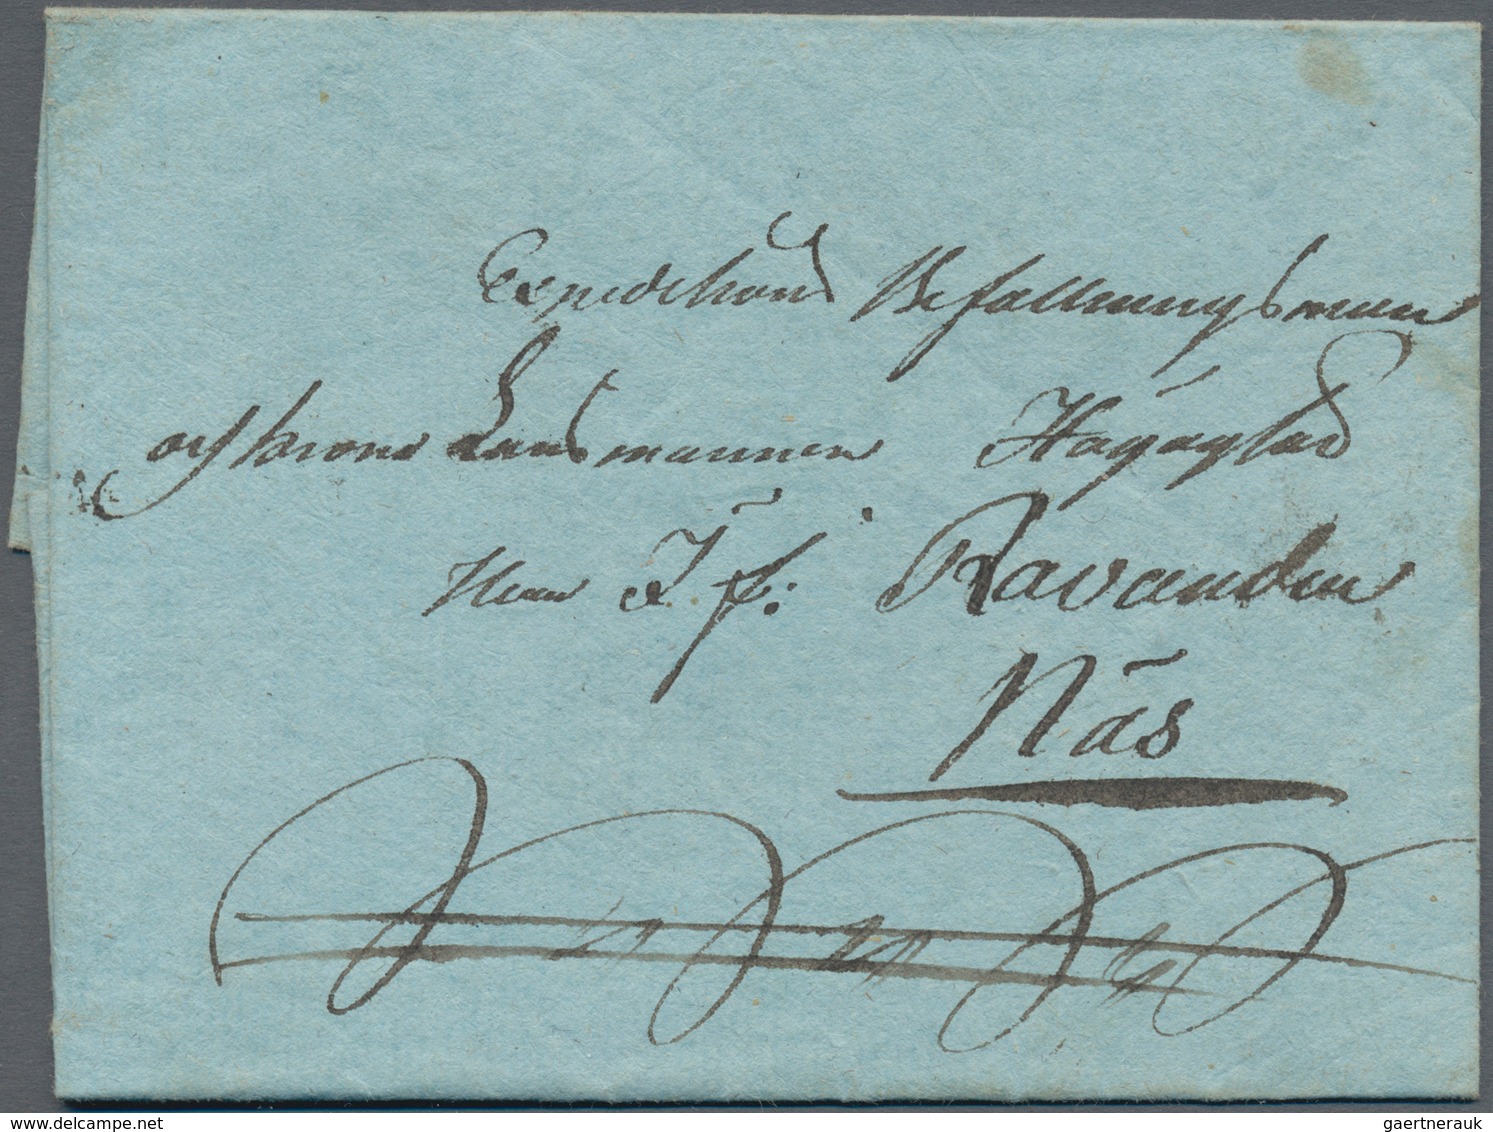 Expeditions Befallningsman
och Krono Länsmannen Högagtad
Herr J. F:
Näs
delcampe.net
gaertnerauk